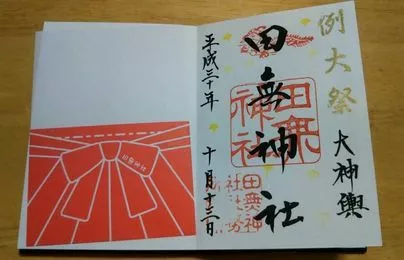 例大祭
大神輿
田無神社
田無神社
平成三十年 十月十三日
田無神社